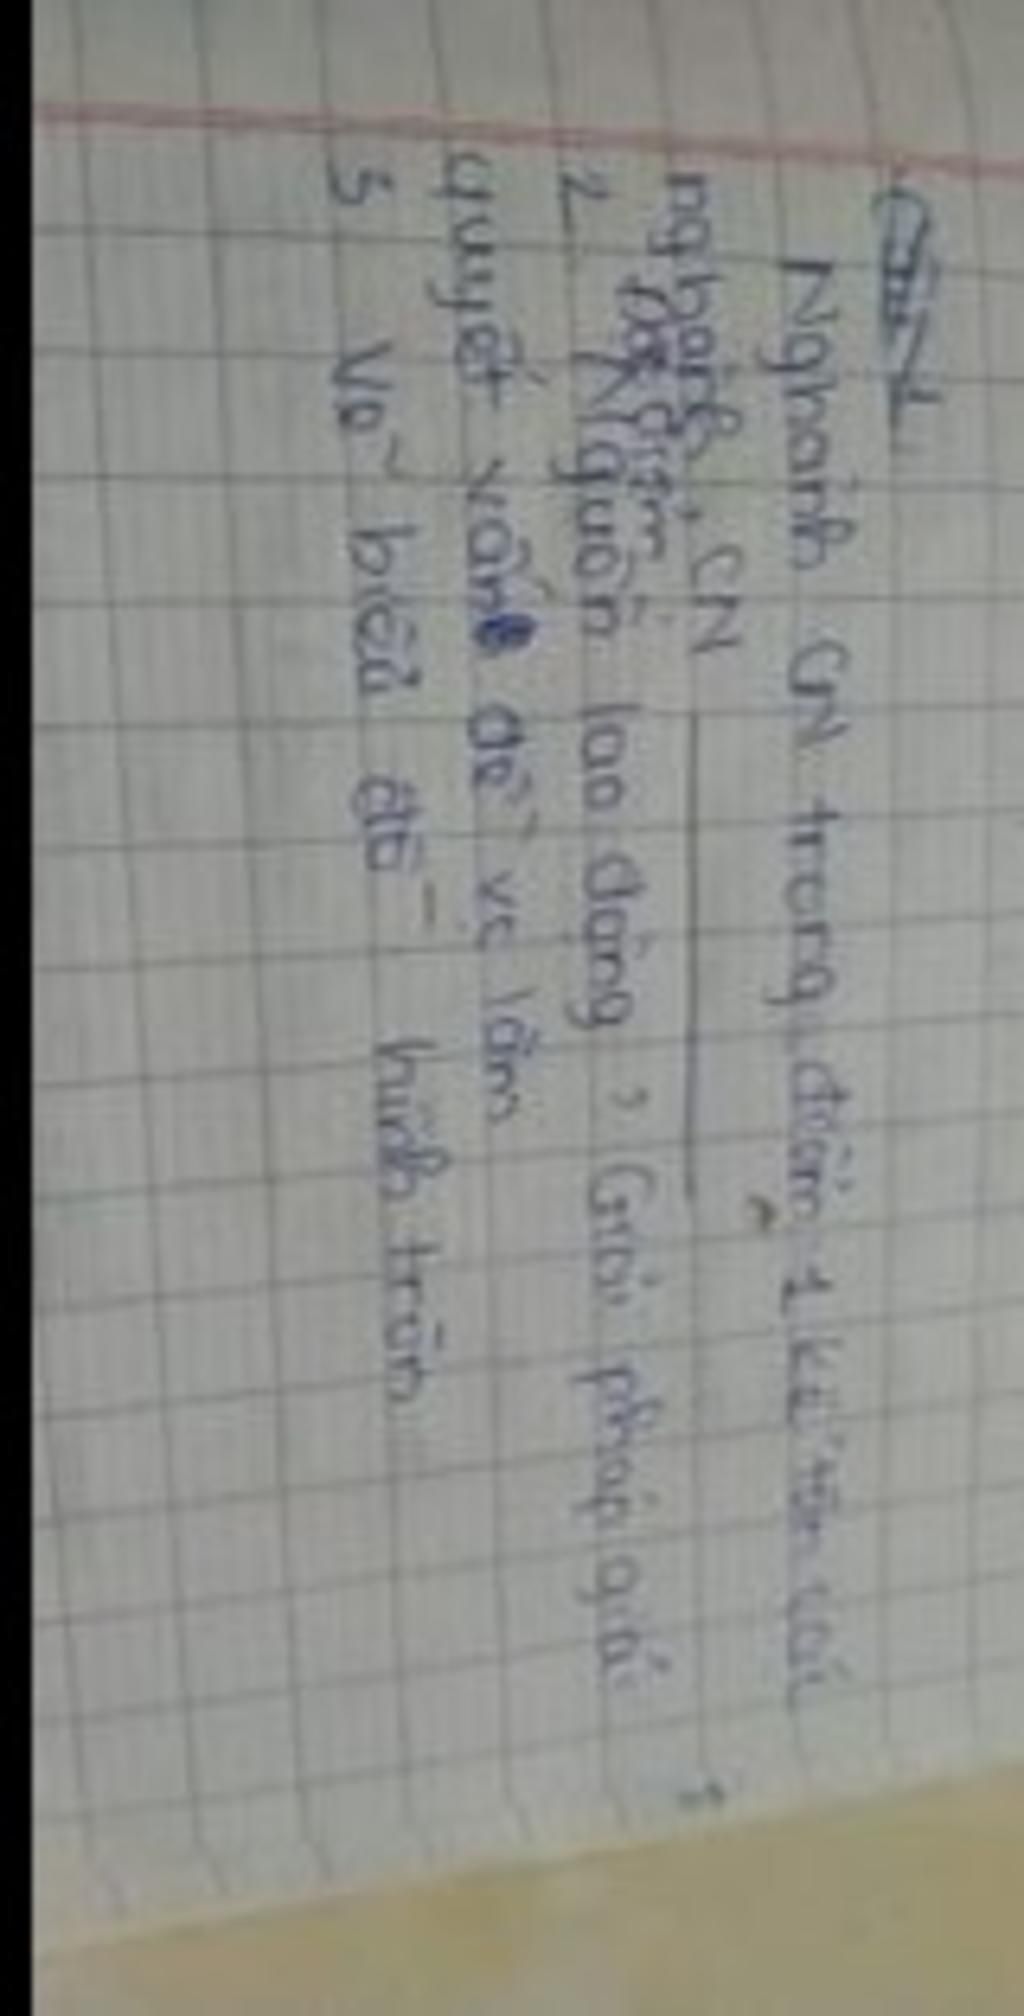 Nghành CN trọng điểm 1 kể tên các
nghành CN
đặc điểm
2 Nguồn lao động ? Giải pháp giải
quyết vấn đề vc làm
3 Vẽ biểu đồ hình tròn